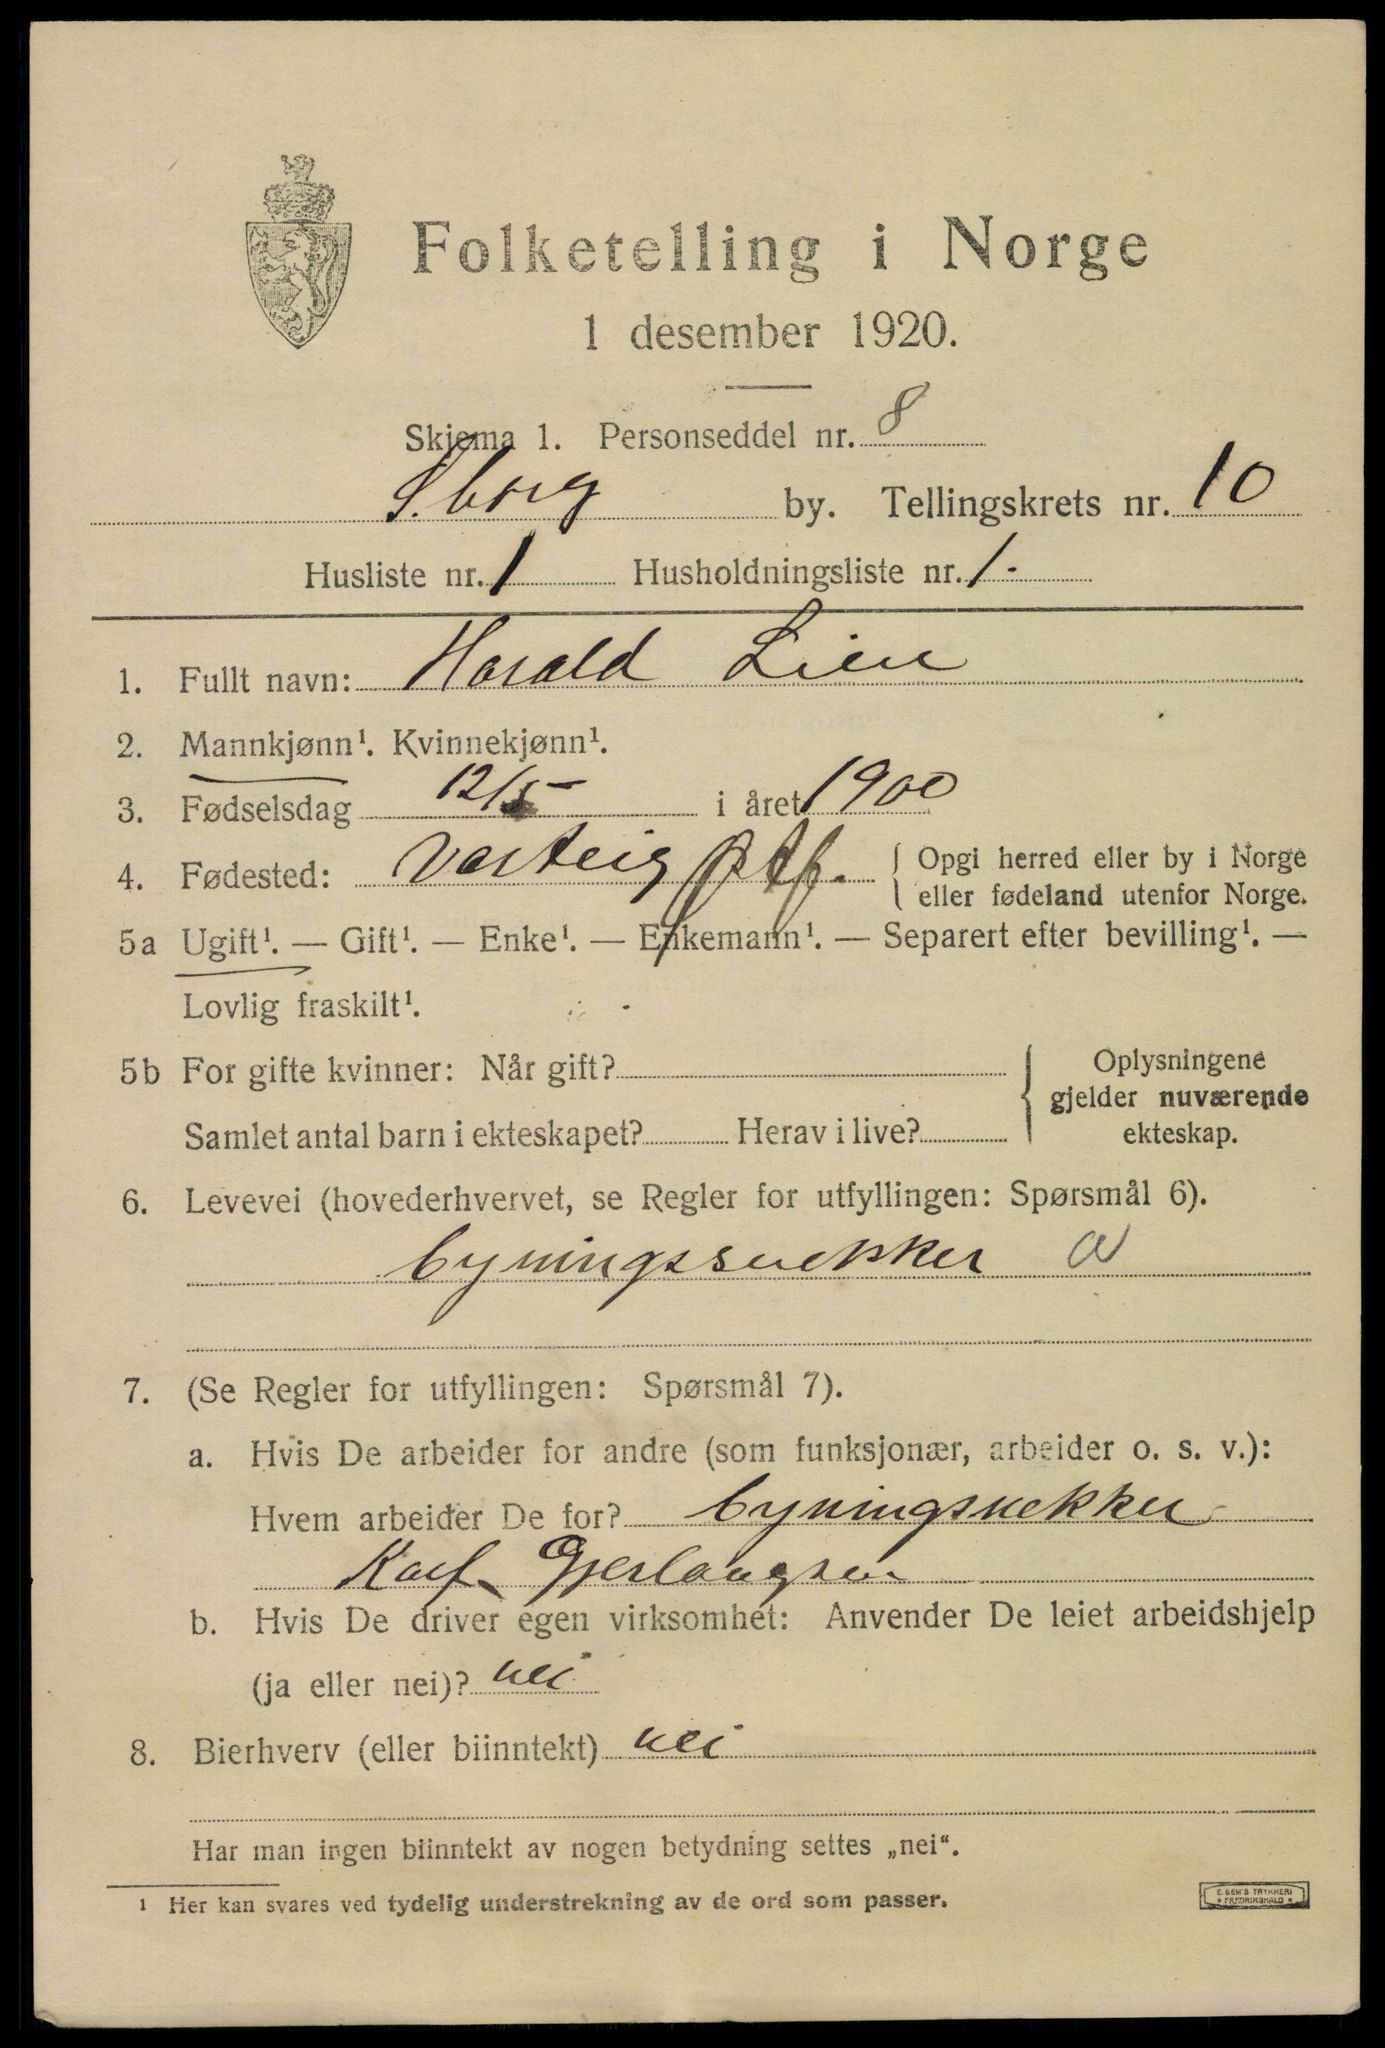 Folketelling i Norge
1 desember 1920.
Skjema 1. Personseddel nr. 8
S.borg by. Tellingskrets nr. 10
Husliste nr. 1 Husholdningsliste nr. 1.
1. Fullt navn: Harald Lien
2. Mannkjønn¹. Kvinnekjønn¹.
3. Fødselsdag 12/5 i året 1900
4. Fødested: Varteig Østf. { Opgi herred eller by i Norge
eller fødeland utenfor Norge.
5a Ugift¹. — Gift¹. — Enke¹. — Enkemann¹. — Separert efter bevilling¹. —
Lovlig fraskilt¹.
5b For gifte kvinner: Når gift? { Oplysningene
gjelder nuværende
Samlet antal barn i ekteskapet? Herav i live? ekteskap.
6. Levevei (hovederhvervet, se Regler for utfyllingen: Spørsmål 6).
bygningssnekker a
7. (Se Regler for utfyllingen: Spørsmål 7).
a. Hvis De arbeider for andre (som funksjonær, arbeider o. s. v.):
Hvem arbeider De for? bygningsnekker
Karl Gjerlaugsen
b. Hvis De driver egen virksomhet: Anvender De leiet arbeidshjelp
(ja eller nei)? nei
8. Bierhverv (eller biinntekt) nei
Har man ingen biinntekt av nogen betydning settes „nei“.
¹ Her kan svares ved tydelig understrekning av de ord som passer.
E. SEM'S TRYKKERI
* FREDRIKSHALD *